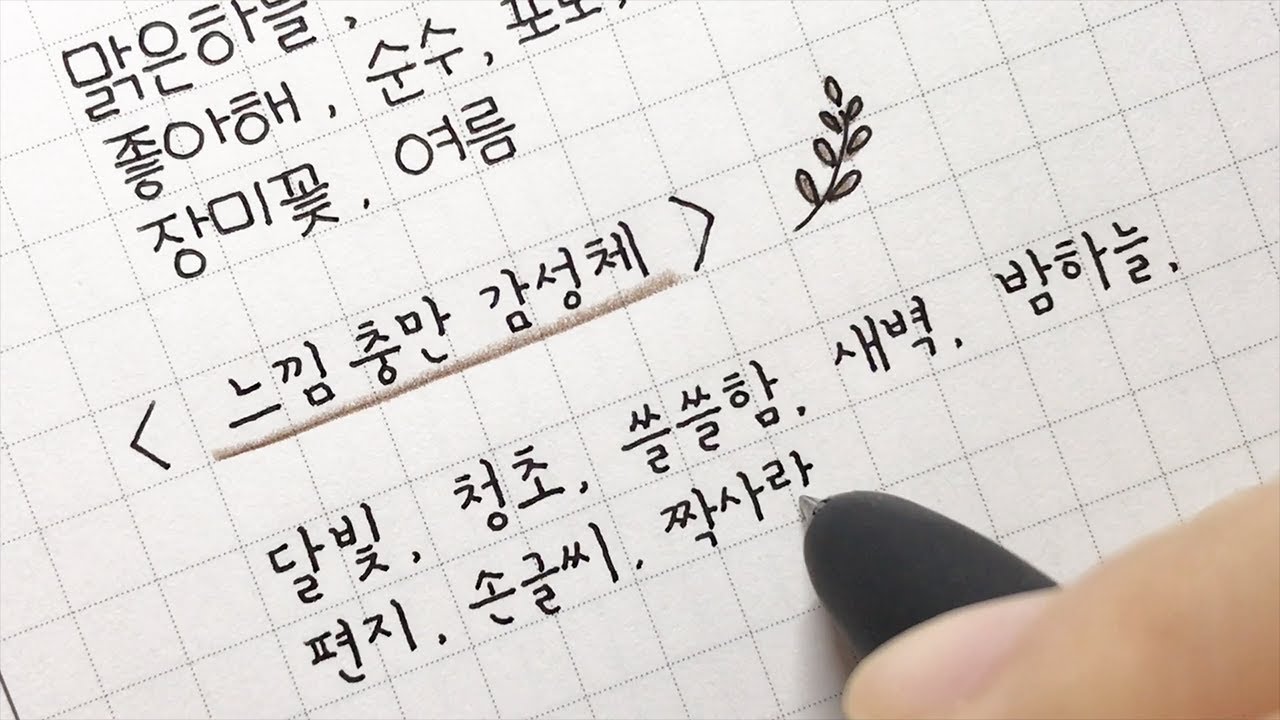 맑은하늘,
좋아해, 순수,
장미꽃, 여름
< 느낌 충만 감성체 >
달빛, 청초, 쓸쓸함, 새벽, 밤하늘,
편지, 손글씨, 짝사라